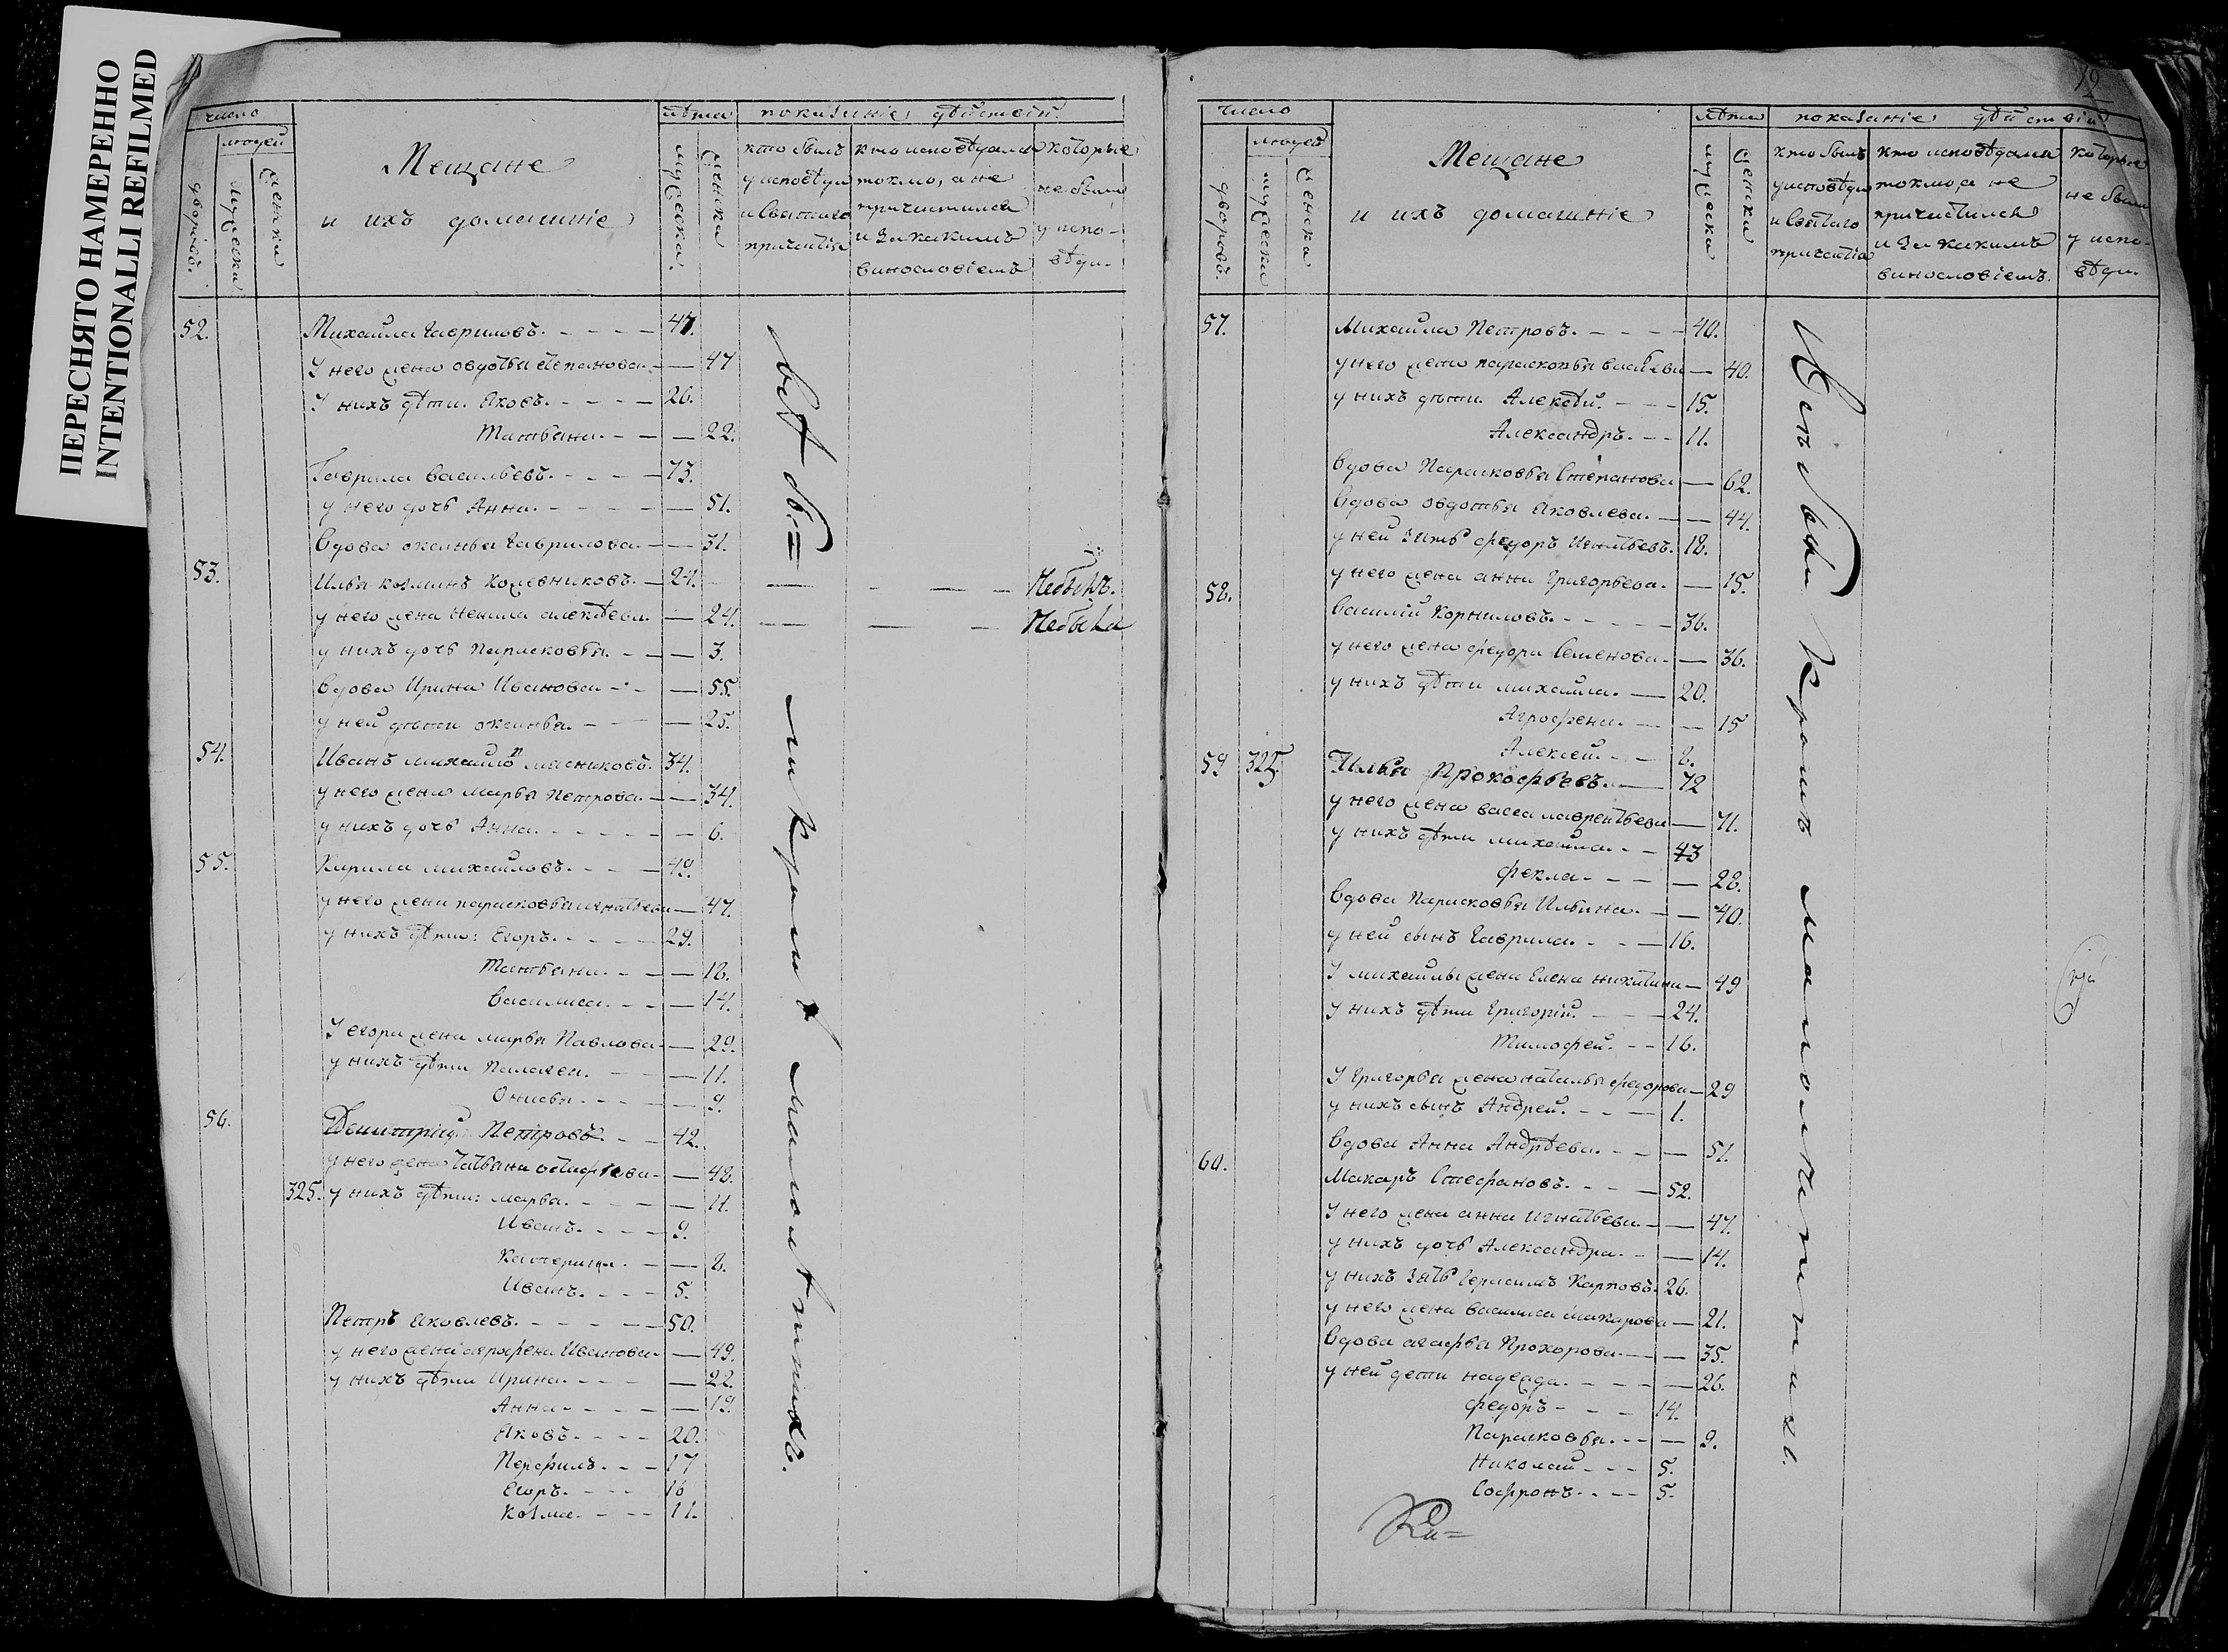 ПЕРЕСНЯТО НАМЕРЕННО
INTENTIONALLI REFILMED
число
людей
дворовъ.
мужеска
женска
Мещане
и ихъ домашніе
лѣта
мужеска.
женска
показаніе дѣйствій.
кто былъ
у исповѣди
и святаго
причастія
кто исповѣдался
токмо, а не
причистился
и за какимъ
винословіемъ
которые
не были
у испо-
вѣди.
52. Михайла Гавриловъ. 47.
У него жена Овдотья Степанова 47
У нихъ дѣти. Яковъ. 26.
Татьяна. 22.
Гаврила Васильевъ. 73.
у него дочь Анна. 51.
Вдова Оксинья Гаврилова 31.
53. Илья Козминъ Кожевниковъ. 24. Небылъ.
у него жена Ненила Алексѣева. 24. Небыла
у нихъ дочь Парасковья. 3.
Вдова Ирина Иванова 55.
у ней дѣти Оксинья. 25.
54. Иванъ Михайловъ Мясниковъ. 34.
у него жена Марья Петрова. 34.
у нихъ дочь Анна. 6.
55. Кирила Михайловъ. 49.
у него жена Парасковья Игнатьева 47.
у нихъ дѣти: Егоръ. 29.
Татьяна. 18.
Василиса. 14.
У Егора жена Марья Павлова 29.
у нихъ дѣти Палагея. 11.
Онисья. 9.
56. Димитрій Петровъ. 42.
у него жена Татьяна Остафьева 42.
325. у нихъ дѣти: Марья. 11.
Иванъ. 9.
Катерина. 8.
Иванъ. 5.
Петръ Яковлевъ. 50.
у него жена Агрофена Иванова 49.
у нихъ дѣти Ирина. 22.
Анна 19.
Яковъ. 20.
Перфилъ. 17
Егоръ. 16
Козма. 11.
всѣ бы=
ли кромѣ малолѣтныхъ.
12
число
людей
дворовъ.
мужеска
женска
Мещане
и ихъ домашніе
лѣта
мужеска
женска
показаніе дѣйствій
кто былъ
у исповѣди
и святаго
причастія
кто исповѣдался
токмо, а не
причистился
и за какимъ
винословіемъ.
которые
не были
у испо-
вѣди.
57. Михайла Петровъ. 40.
у него жена Парасковья Васильева 40.
у нихъ дѣти Алексѣй. 15.
Александръ. 11.
Вдова Парасковья Степанова 62.
Вдова Овдотья Яковлева. 44.
у ней зять Федоръ Игнатьевъ. 18.
у него жена Анна Григорьева. 15.
58. Василій Корниловъ. 36.
у него жена Федора Семенова 36.
у нихъ дѣти Михайла. 20.
Агрофена. 15
Алексей. 8.
59 325. Илья Прокофьевъ. 72
у него жена Васса Лаврентьева 71.
у нихъ дѣти Михайла. 43
Фекла 28.
Вдова Парасковья Ильина. 40.
у ней сынъ Гаврила. 16.
У Михайлы жена Елена Никитина 49
У нихъ дѣти Григорій. 24.
Тимофей. 16.
У Григорья жена Наталья Федорова 29
у нихъ сынъ Андрей. 1.
Вдова Анна Андрѣева. 51.
60. Макаръ Стефановъ. 52.
У него жена Анна Игнатьева 47.
у нихъ дочь Александра. 14.
у нихъ зять Герасимъ Карповъ. 26.
у него жена Василиса Макарова 21.
Вдова Агафья Прохорова. 35.
у ней дети Надежда. 26.
Федоръ 14.
Парасковья. 9.
Николай 5.
Софронъ. 5.
кромѣ